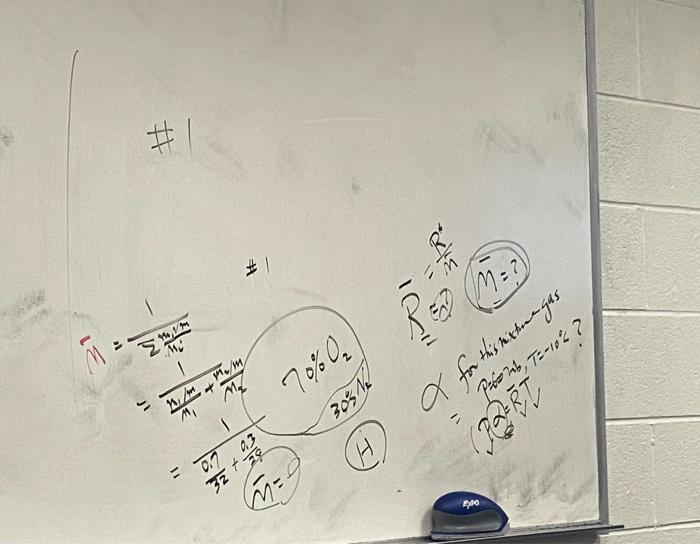 #1
#1
M̄ = 1 / (Σ (mᵢ/m) / Mᵢ)
= 1 / ((m₁/m) / M₁ + (m₂/m) / M₂)
= 1 / (0.7/32 + 0.3/28)
M̄ =
70% O₂
30% N₂
R̄ = R* / M̄
R̄ = ?
M̄ = ?
α for this mixture gas
T=-10°C ?
Pα = R̄T
EXPO